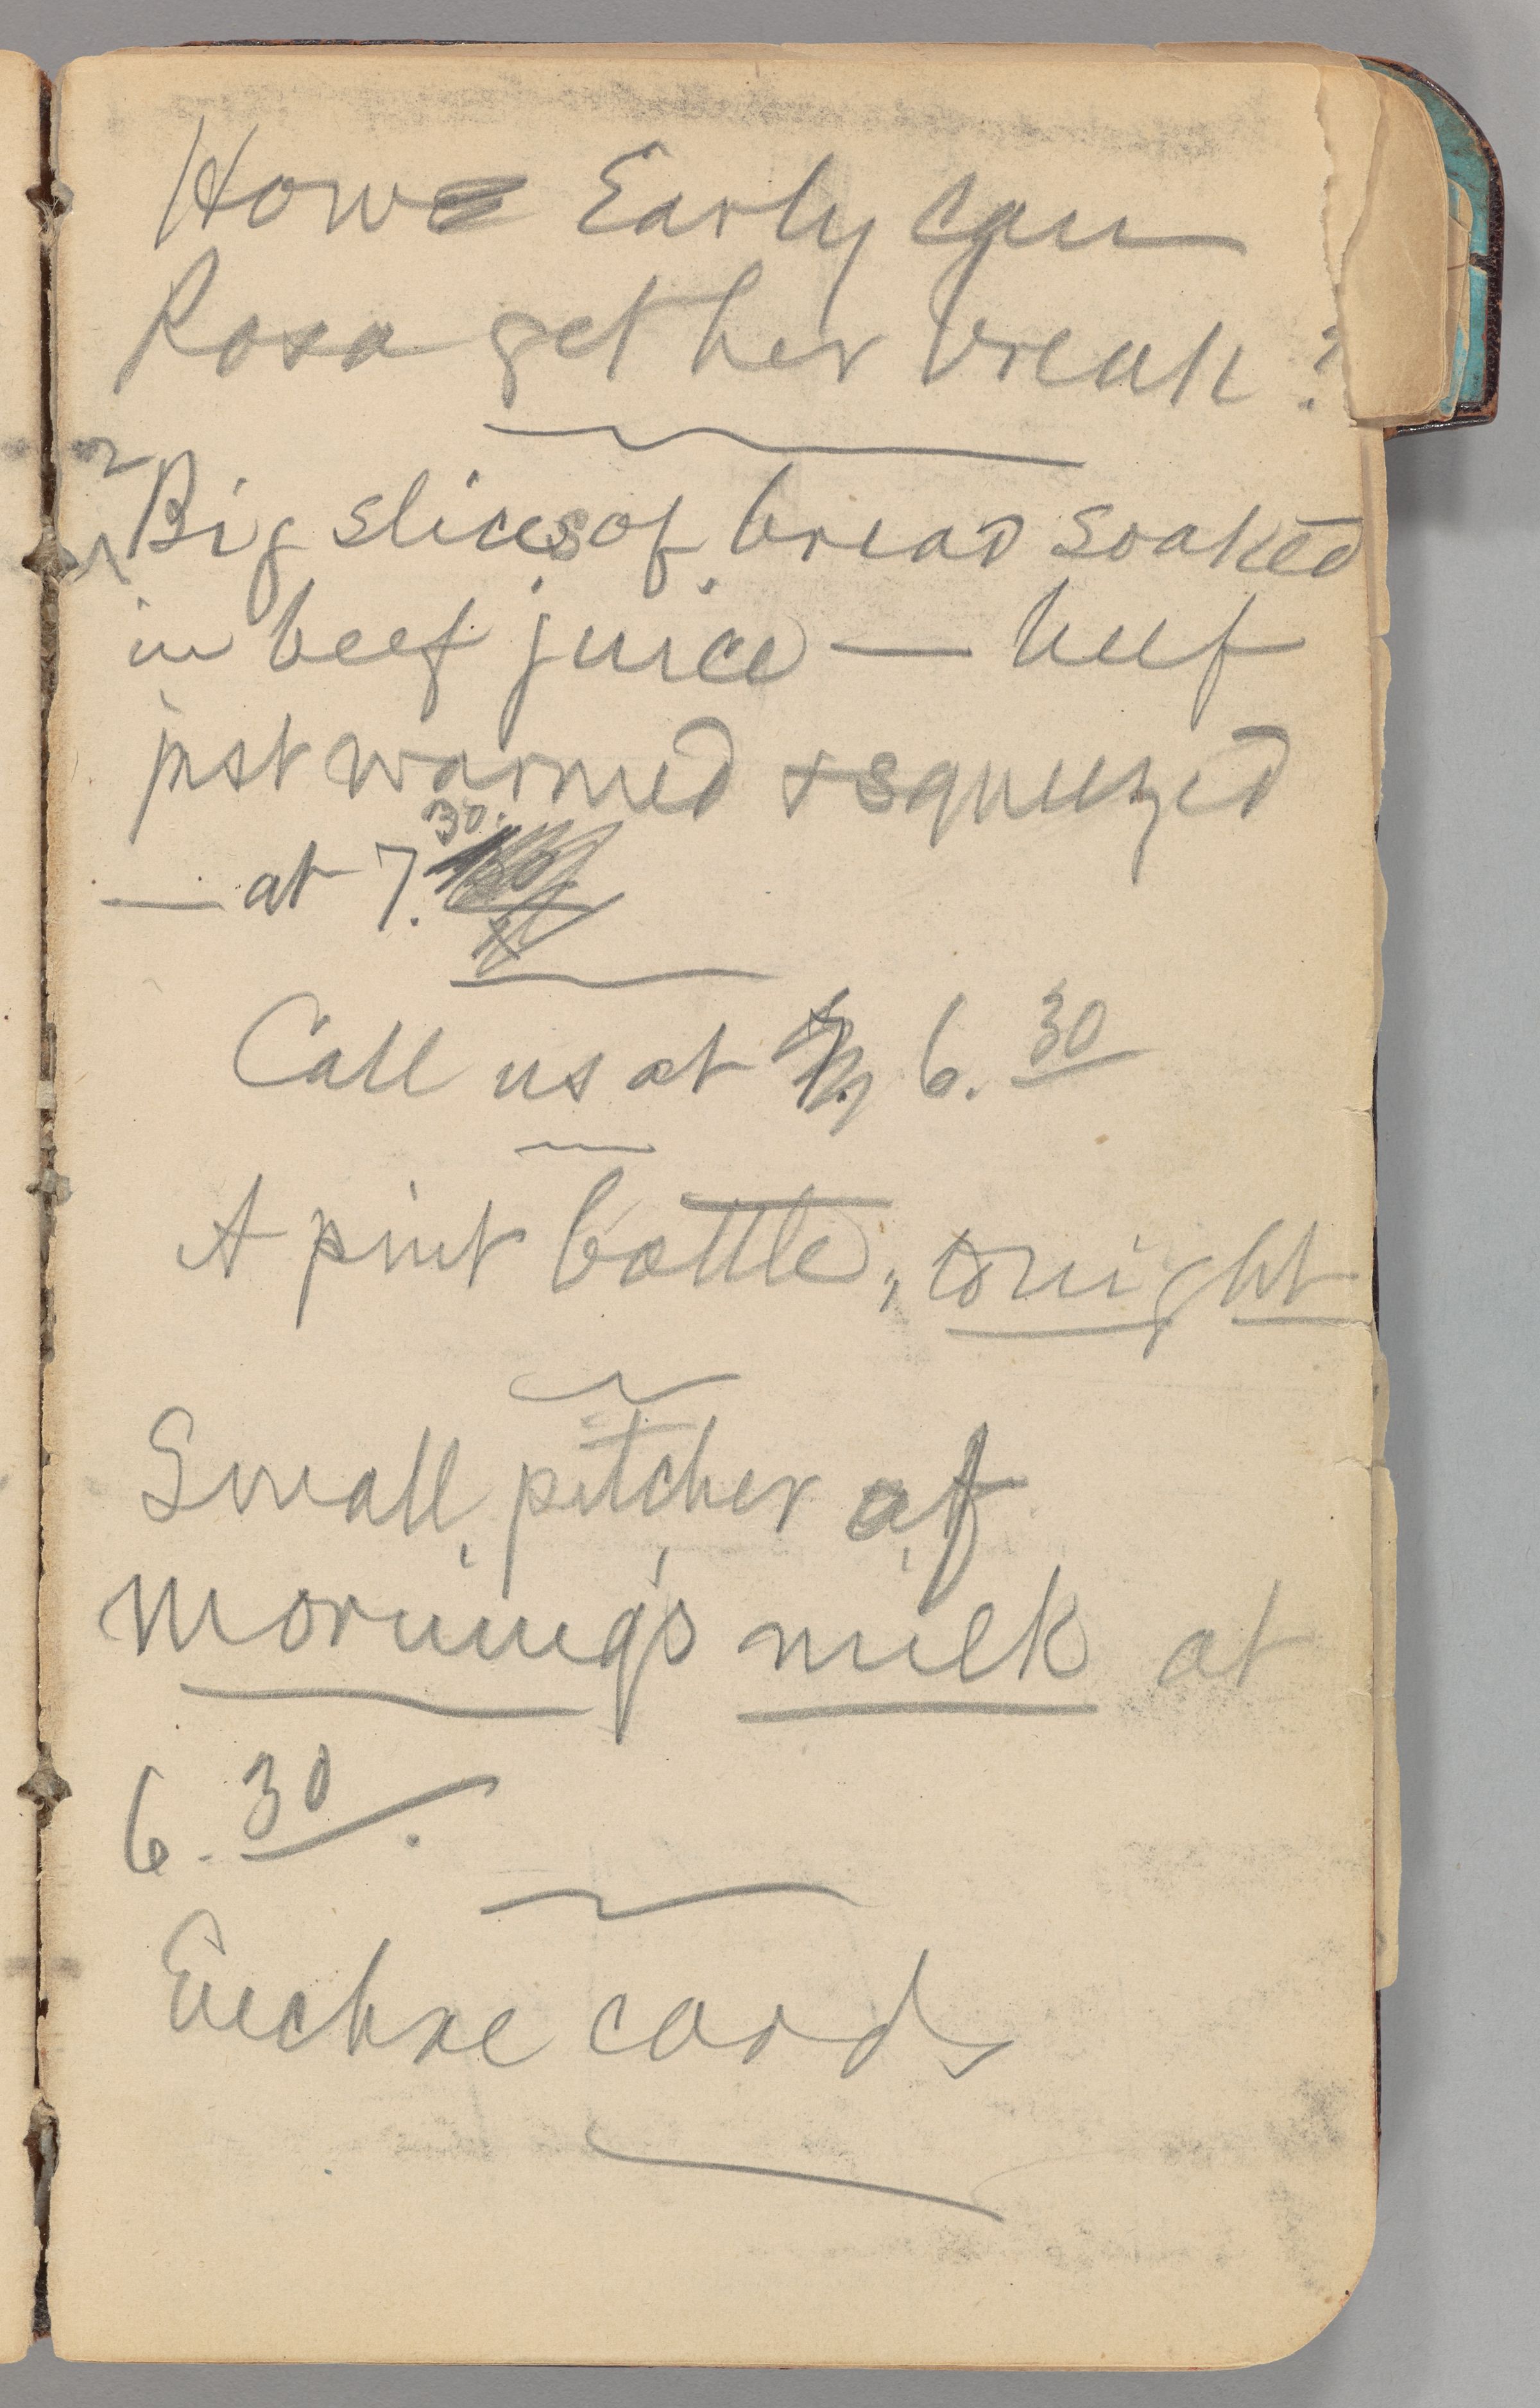 How Early can
Rosa get her break?
2 Big slices of bread soaked
in beef juice — beef
just warmed + squeezed
— at 7.30.
Call us at 6.30
A pint bottle, tonight
Small pitcher of
morning's milk at
6.30.
Euchre cards